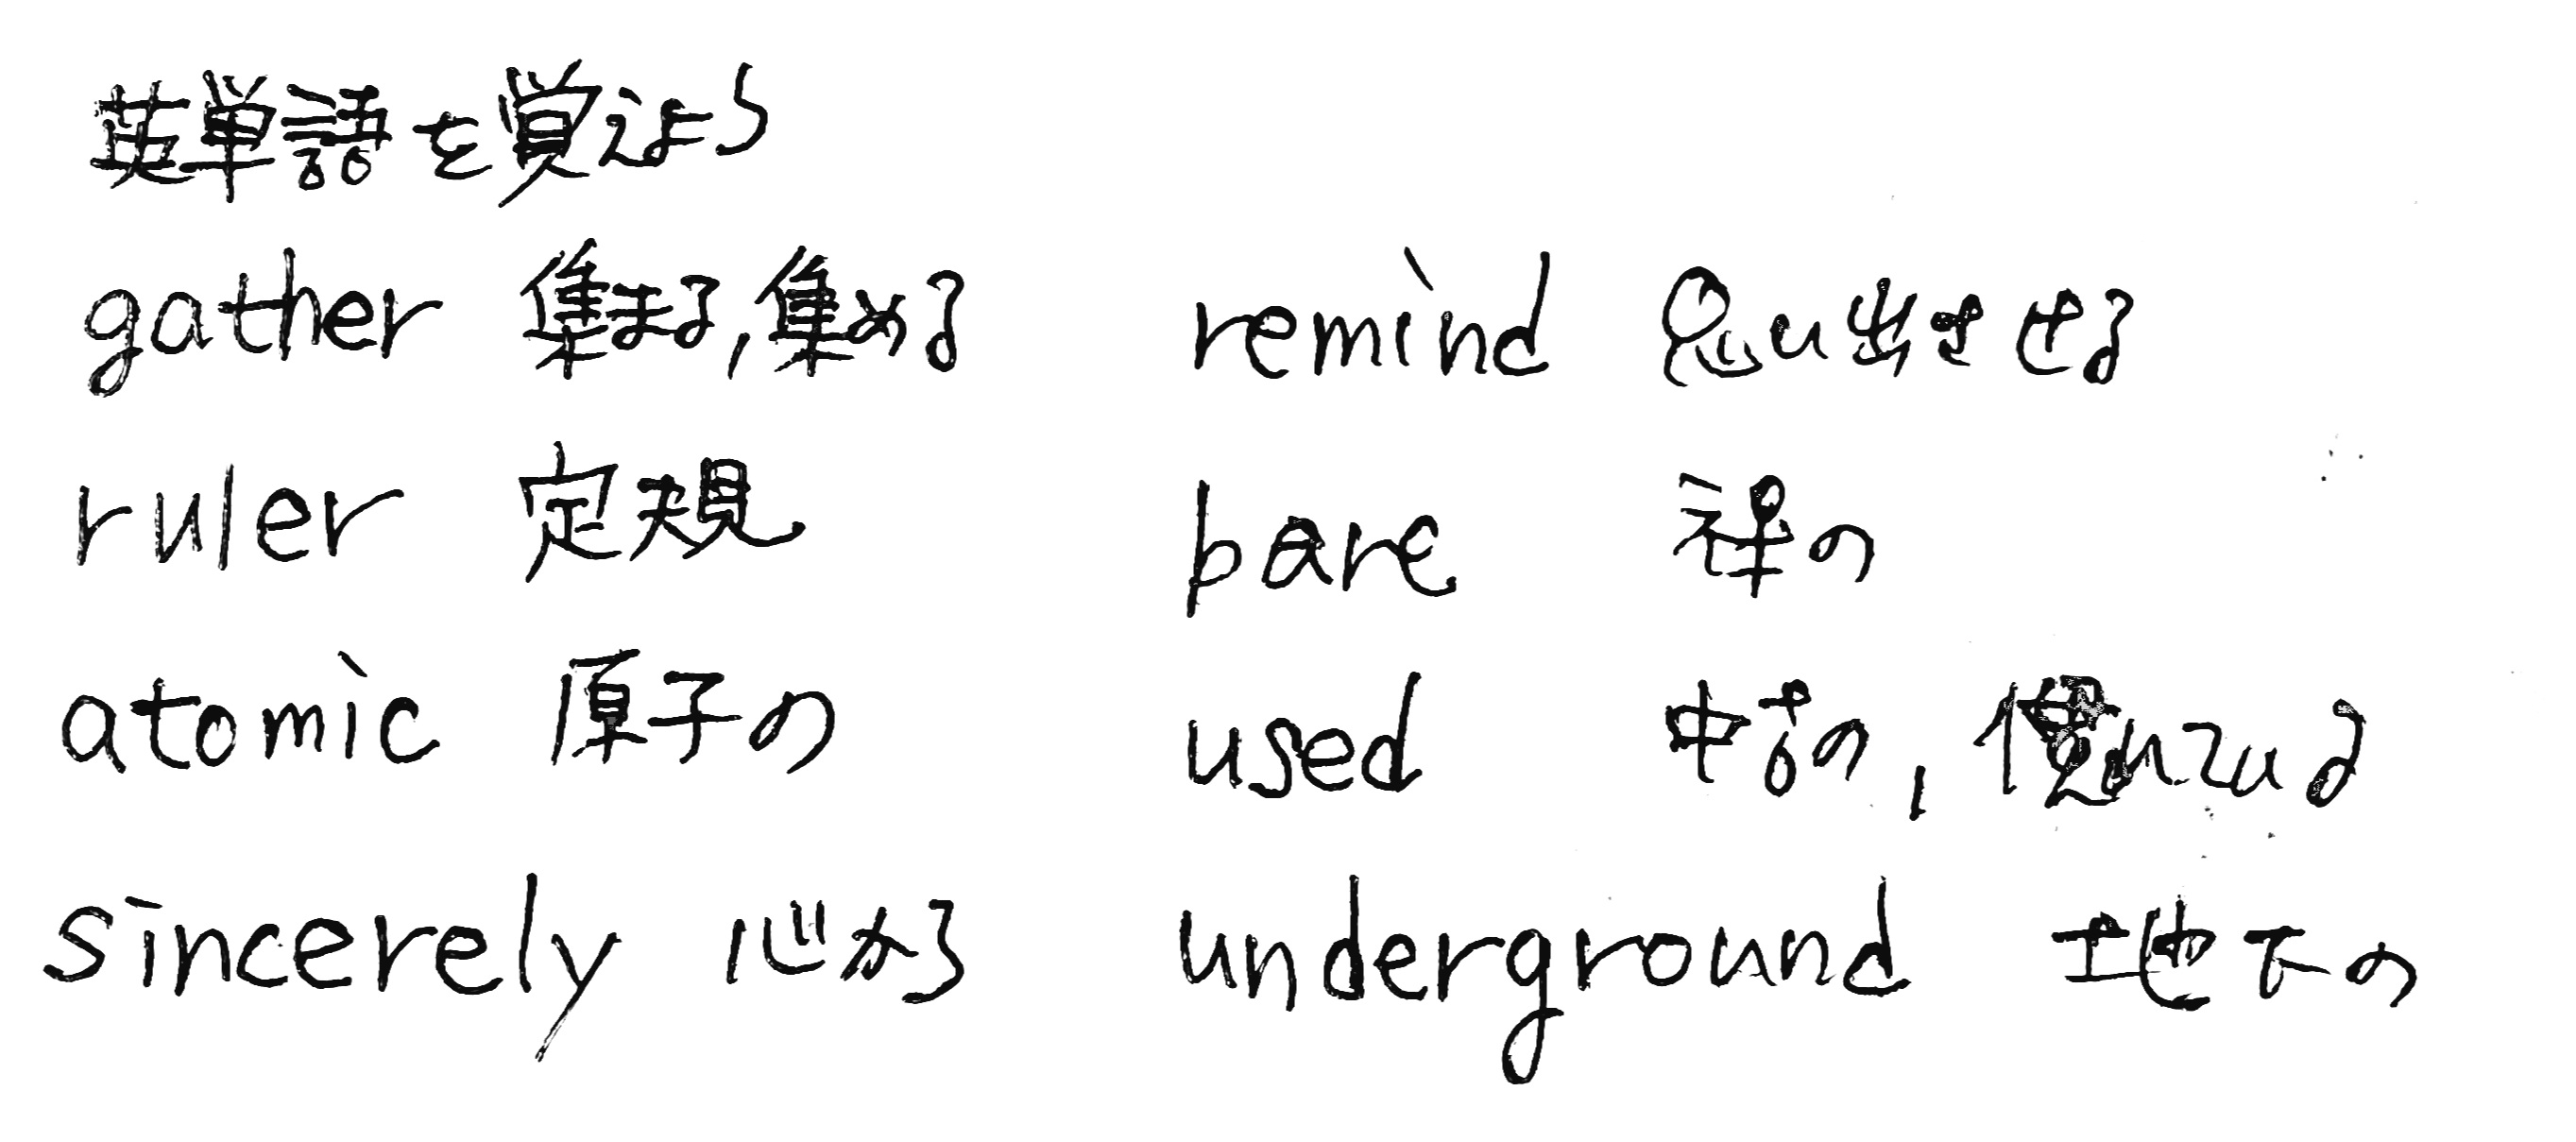 英単語を覚えよう
gather 集まる,集める
ruler 定規
atomic 原子の
sincerely 心から
remind 思い出させる
bare 裸の
used 中古の,
underground 地下の